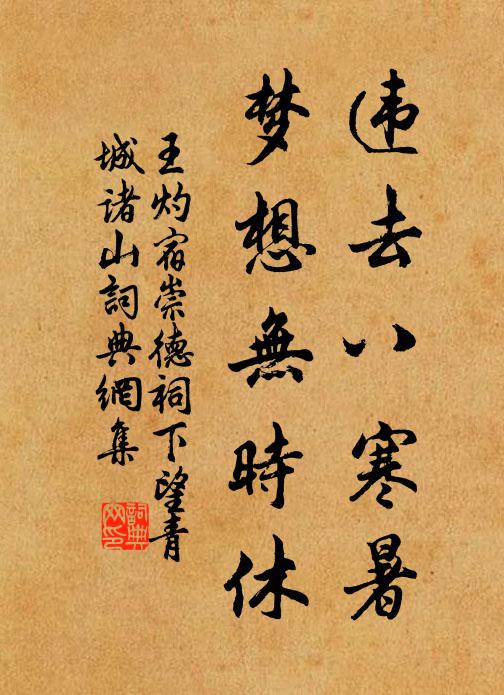 违去八寒暑
梦想無時休
王灼宿崇德祠下望青
城诸山詞典網集
詞典网印